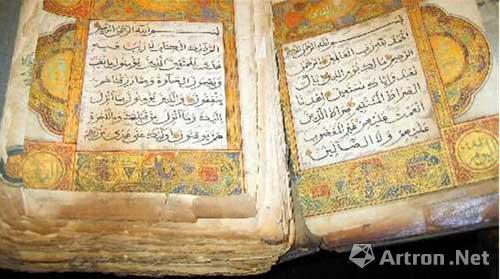 بسم الله الرحمن الرحيم
الحمد لله رب العالمين الرحمن
الرحيم ملك يوم الدين اياك
نعبد واياك نستعين اهدنا
الصراط المستقيم صراط الذين
انعمت عليهم غير المغضوب
عليهم ولا الضالين
بسم الله الرحمن الرحيم
الم ذلك الكتاب لا ريب فيه
هدى للمتقين الذين يؤمنون بالغيب
ويقيمون الصلوة ومما رزقناهم
ينفقون والذين يؤمنون بما انزل
اليك وما انزل من قبلك وبالاخرة
هم يوقنون اولئك على هدى من ربهم
Artron.Net